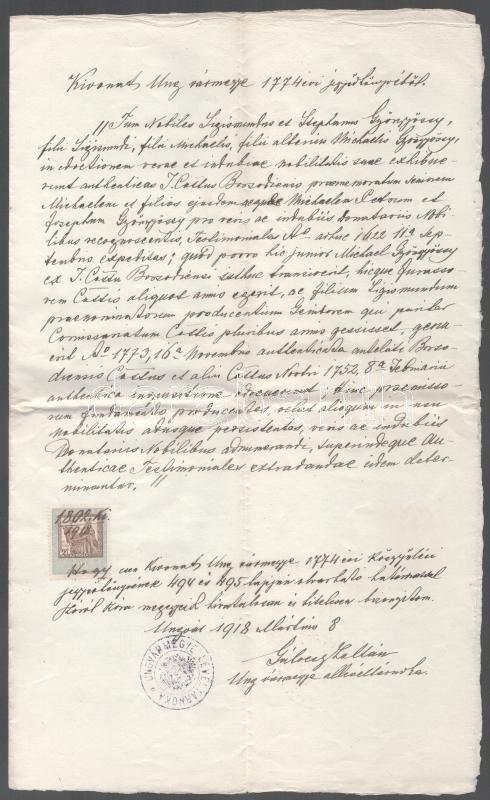 Kivonat Ung vármegye 1774 évi jegyzőkönyvéből.
"Tum Nobiles Sigismundus et Stephanus Gyöngyössy,
filii Sigismundi, filii Michaelis, filii alterius Michaelis Gyöngyösy,
in doctionem verae et indubiae nobilitatis suae exhibue-
runt authenticas I. Cottus Borsodiensis praememoratum Seniorem
Michaelem et filios ejusdem aeque Michaelem Petrum et
Josephum Gyöngyösy pro veris ac indubiis Donatariis Nobi-
libus recognoscentis, Testimoniales Aº adhuc 1622 11ª Sep-
tembris expeditas; quod porro hic junior Michael Gyöngyösy
ex I. Cottu Borsodiensi isthuc transierit, hicque Jurasso-
rem Cottus aliquot annis egerit, ac filium Sigismundum
praenominatorum producentium Genitorem qui pariter
Comissariatum Cottus pluribus annis gessisset, genu-
erit Aº 1773, 16ª Novembris authenticata antelati Borso-
diensis Cottus et alia Cottus Nostri 1752, 8ª Februarii
authentica inquisitione edocuerint, hinc praemisso-
rum fundamento producentes, velut aliquin in usu
nobilitatis absque persistentes, veris ac indubiis
Donatariis Nobilibus adnumerandi, superindeque Au-
thenticae Testimoniales extradandae idem deter-
minantur."
1802. ki.
1918
Hogy ezen Kivonat Ung vármegye 1774 évi közgyűlési
jegyzőkönyvének 494 és 495 lapján olvasható határozattal
szóról szóra megegyező hivatalosan és hitelesen bizonyítom.
Ungvár 1918 Március 8
Gulovics Zoltán
Ung vármegye allevéltárnoka.
UNGVÁRMEGYE LEVÉLTÁRNOKA